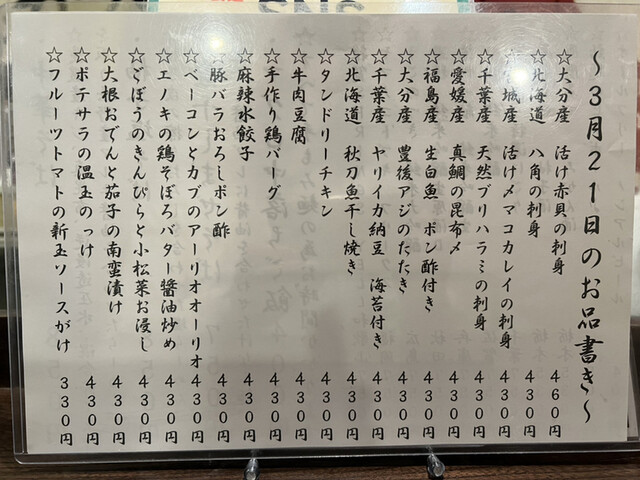 ～３月２１日のお品書き～
☆大分産　活け赤貝の刺身　４６０円
☆北海道　八角の刺身　４３０円
☆宮城産　活けメマコカレイの刺身　４３０円
☆千葉産　天然ブリハラミの刺身　４３０円
☆愛媛産　真鯛の昆布〆　４３０円
☆福島産　生白魚　ポン酢付き　４３０円
☆大分産　豊後アジのたたき　４３０円
☆千葉産　ヤリイカ納豆　海苔付き　４３０円
☆北海道　秋刀魚干し焼き　４３０円
☆タンドリーチキン　４３０円
☆牛肉豆腐　４３０円
☆手作り鶏バーグ　４３０円
☆麻辣水餃子　４３０円
☆豚バラおろしポン酢　４３０円
☆ベーコンとカブのアーリオオーリオ　４３０円
☆エノキの鶏そぼろバター醤油炒め　４３０円
☆ごぼうのきんぴらと小松菜お浸し　４３０円
☆大根おでんと茄子の南蛮漬け　４３０円
☆ポテサラの温玉のっけ　４３０円
☆フルーツトマトの新玉ソースがけ　３３０円